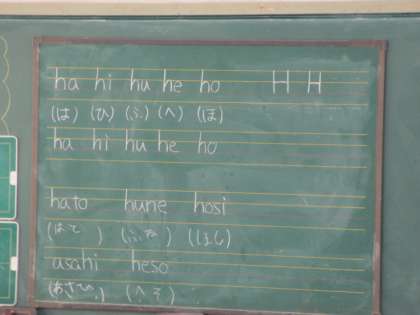 ha hi hu he ho H H
(は) (ひ) (ふ) (へ) (ほ)
ha hi hu he ho
hato hune hosi
(はと) (ふね) (ほし)
asahi heso
(あさひ) (へそ)